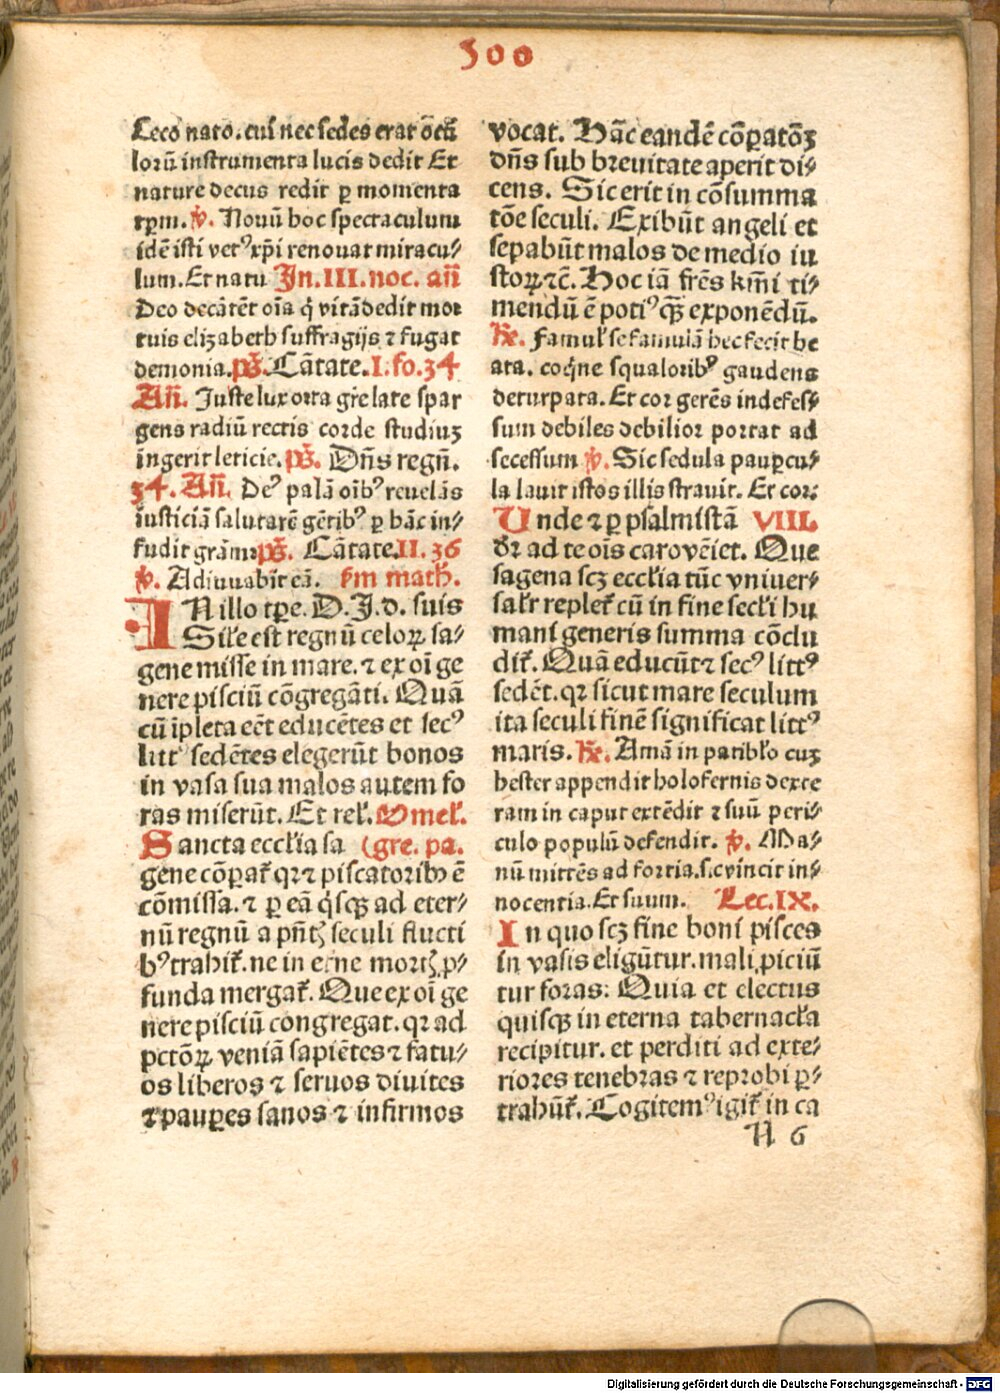 300
Ceco nato. cui nec sedes erat ocu
lorū instrumenta lucis dedit Et
nature decus redit ꝑ momenta
tꝑm. ꝟ. Nouū hoc spectaculum
idē isti vetꝰ xp̄i renouat miracu⸗
lum. Et natu In. III. noc. an̄
Deo decātēt oīa q̇ vitā dedit mor
tuis elizabeth suffragijs ⁊ fugat
demonia. ps̄. Cātate. I. fo. 34
An̄. Juste lux orta gr̄e late spar
gens radiū rectis corde studiuꝫ
ingerit leticie. ps̄. Dn̄s regn̄.
54. An̄. Deꝰ palā oībꝰ reuelās
iusticiā salutarē gētibꝰ ꝑ hāc in⸗
fudit grām ps̄. Cātate. II. 36
ꝟ. Adiuuabit eā. ſm math.
IN illo tꝑe. D. J. d. suis
Sil'e est regnū celoꝝ sa⸗
gene misse in mare. ⁊ ex oī ge
nere pisciū cōgregāti. Quā
cū īpleta eēt educētes et secꝰ
litt' sedētes elegerūt bonos
in vasa sua malos autem fo
ras miserūt. Et rel'. Omel'.
Sancta eccl'ia sa (gre. pa.
gene cōꝑat' qꝛ ⁊ piscatoribꝰ ē
cōmissa. ⁊ ꝑ eā q̇sqꝫ ad eter⸗
nū regnū a pn̄tꝭ seculi flucti
bꝰ trahit'. ne in eterne mortꝭ ꝓ⸗
funda mergat'. Que ex oī ge
nere pisciū congregat. qꝛ ad
pctōꝝ veniā sapiētes ⁊ fatu⸗
os liberos ⁊ seruos diuites
⁊ pauꝑes sanos ⁊ infirmos
vocat. Hāc eandē cōꝑatōꝫ
dn̄s sub breuitate aperit di⸗
cens. Sic erit in cōsumma
tōe seculi. Exibūt angeli et
sepabūt malos de medio iu
stoꝝ ⁊c̄. Hoc iā fr̄es km̄i ti⸗
mendū ē potiꝰ qꝫ̄ exponēdū.
R̄. Famul' se famulā hec fecit be
ata. coq̇ne squaloribꝰ gaudens
deturpata. Et cor gerēs indefes⸗
sum debiles debilior portat ad
secessum ꝟ. Sic sedula pauꝑcu⸗
la lauit istos illis strauit. Et cor:
Unde ⁊ ꝑ psalmistā VIII.
dꝛ ad te oīs caro vēiet. Que
sagena scꝫ eccl'ia tūc vniuer⸗
sal'r replet' cū in fine secl'i hu
mani generis summa cōclu
dit'. Quā educūt ⁊ secꝰ littꝰ
sedēt. qꝛ sicut mare seculum
ita seculi finē significat littꝰ
maris. R̄. Amā in patibl'o cuꝫ
hester appendit holofernis dexte
ram in caput extēdit ⁊ suū peri⸗
culo populū defendit. ꝟ. Ma⸗
nū mittēs ad fortia. sic vincit in⸗
nocentia. Et suum. Lec. IX.
In quo scꝫ fine boni pisces
in vasis eligūtur. mali ꝓiciū
tur foras: Quia et electus
quisqꝫ in eterna tabernacl'a
recipitur. et perditi ad exte⸗
riores tenebras ⁊ reprobi ꝑ⸗
trahūt'. Cogitemꝰ igit' in ca
N 6
Digitalisierung gefördert durch die Deutsche Forschungsgemeinschaft - DFG